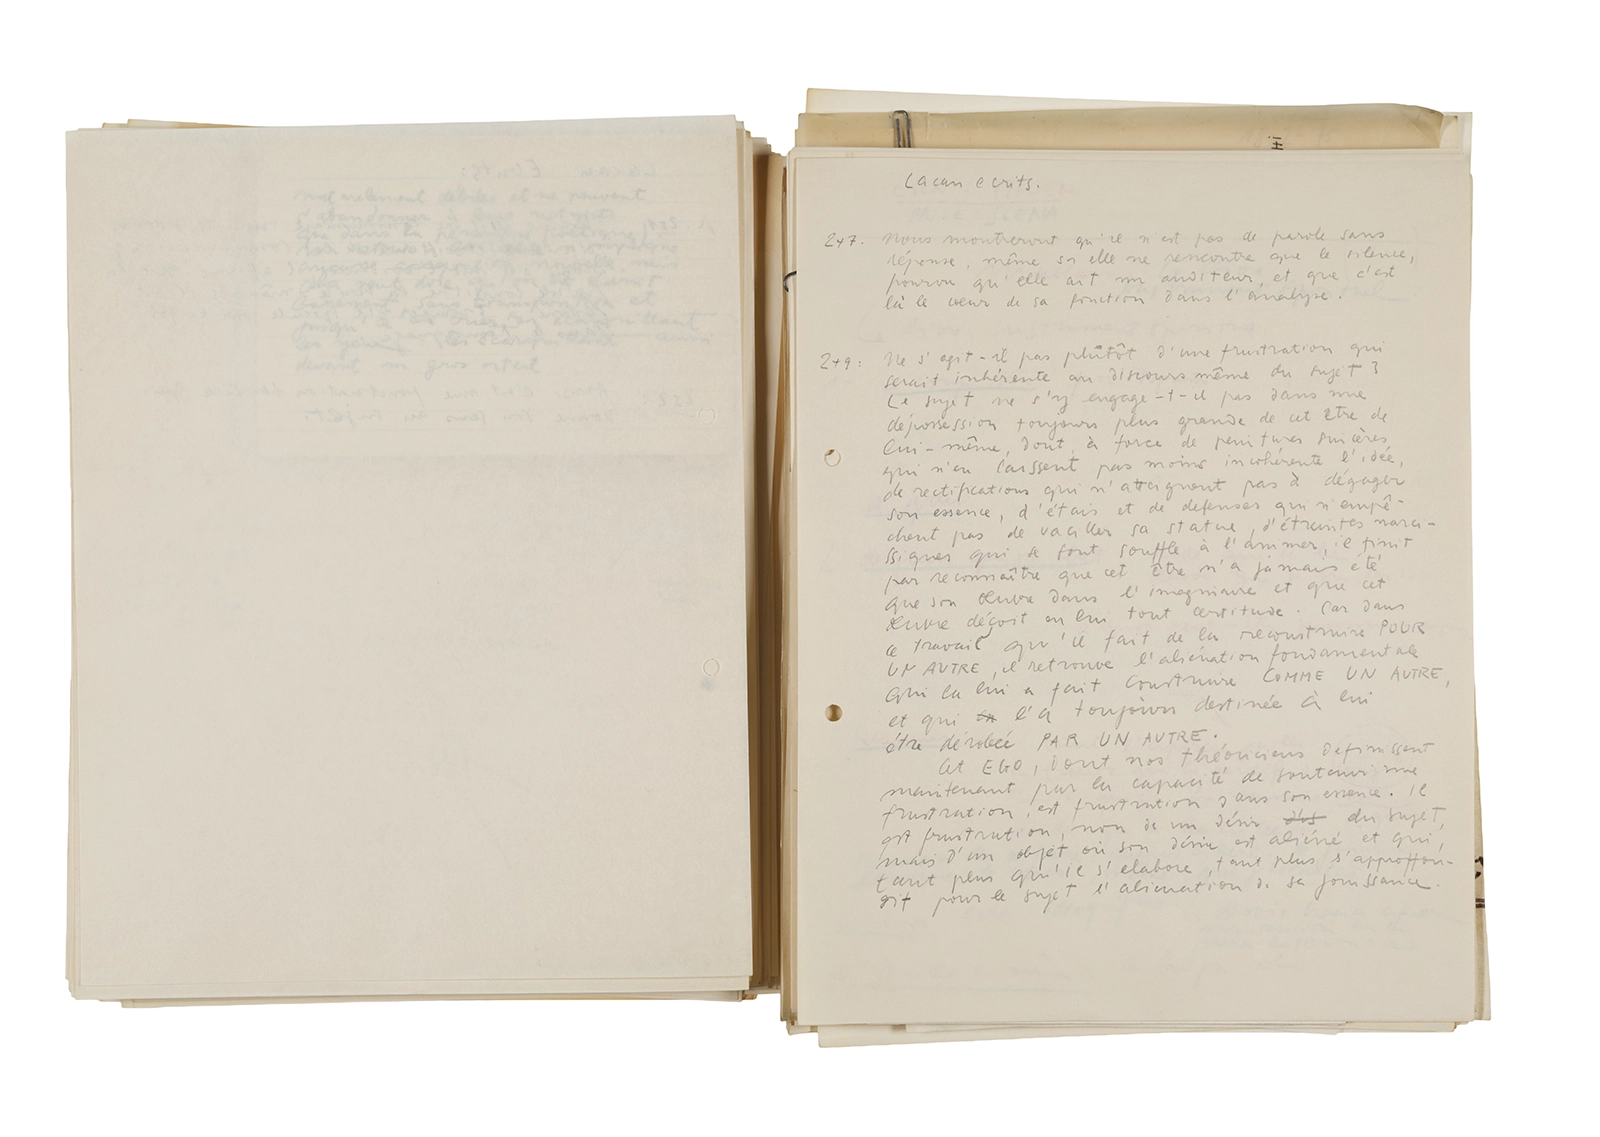 Lacan ecrits.
247. Nous montreront qu'il n'est pas de parole sans
réponse, même si elle ne rencontre que le silence,
pourvu qu'elle ait un auditeur, et que c'est
là le cœur de sa fonction dans l'analyse.
249: Ne s'agit-il pas plûtôt d'une frustration qui
serait inhérente au discours même du sujet?
Le sujet ne s'y engage-t-il pas dans une
dépossession toujours plus grande de cet Être de
lui-même, dont, à force de peintures sincères
qui n'en laissent pas moins incohérente l'idée,
de rectifications qui n'atteignent pas à dégager
son essence, d'étais et de defenses qui n'empê-
chent pas de vaciller sa statue, d'étreintes narci-
ssiques qui se font souffle à l'animer, il finit
par reconnaître que cet Être n'a jamais été
que son Œuvre dans l'imaginaire et que cet
Œuvre déçoit en lui tout certitude. Car dans
ce travail qu'il fait de la reconstruire POUR
UN AUTRE, il retrouve l'aliénation fondamentale
qui la lui a fait construire COMME UN AUTRE,
et qui l'a toujours destinée à lui
être dérobée PAR UN AUTRE.
Cet EGO, dont nos théoriciens definissent
maintenant par la capacité de soutenir une
frustration, est frustration dans son essence. Il
est frustration, non de un désir du sujet,
mais d'un objet où son désir est aliéné et qui,
tant plus qu'il s'elabore, tant plus s'approffon-
dit pour le sujet l'aliénation de sa jouissance.